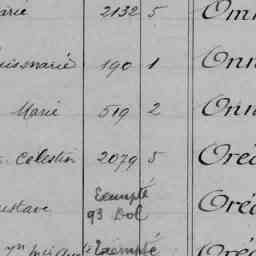 arie 2132 5 Om
uis marie 190 1 Onn
Marie 519 2 Onn
Celestin 2079 5 Oré
ustave Exempté Oré
93 Dol
Exempté Oré